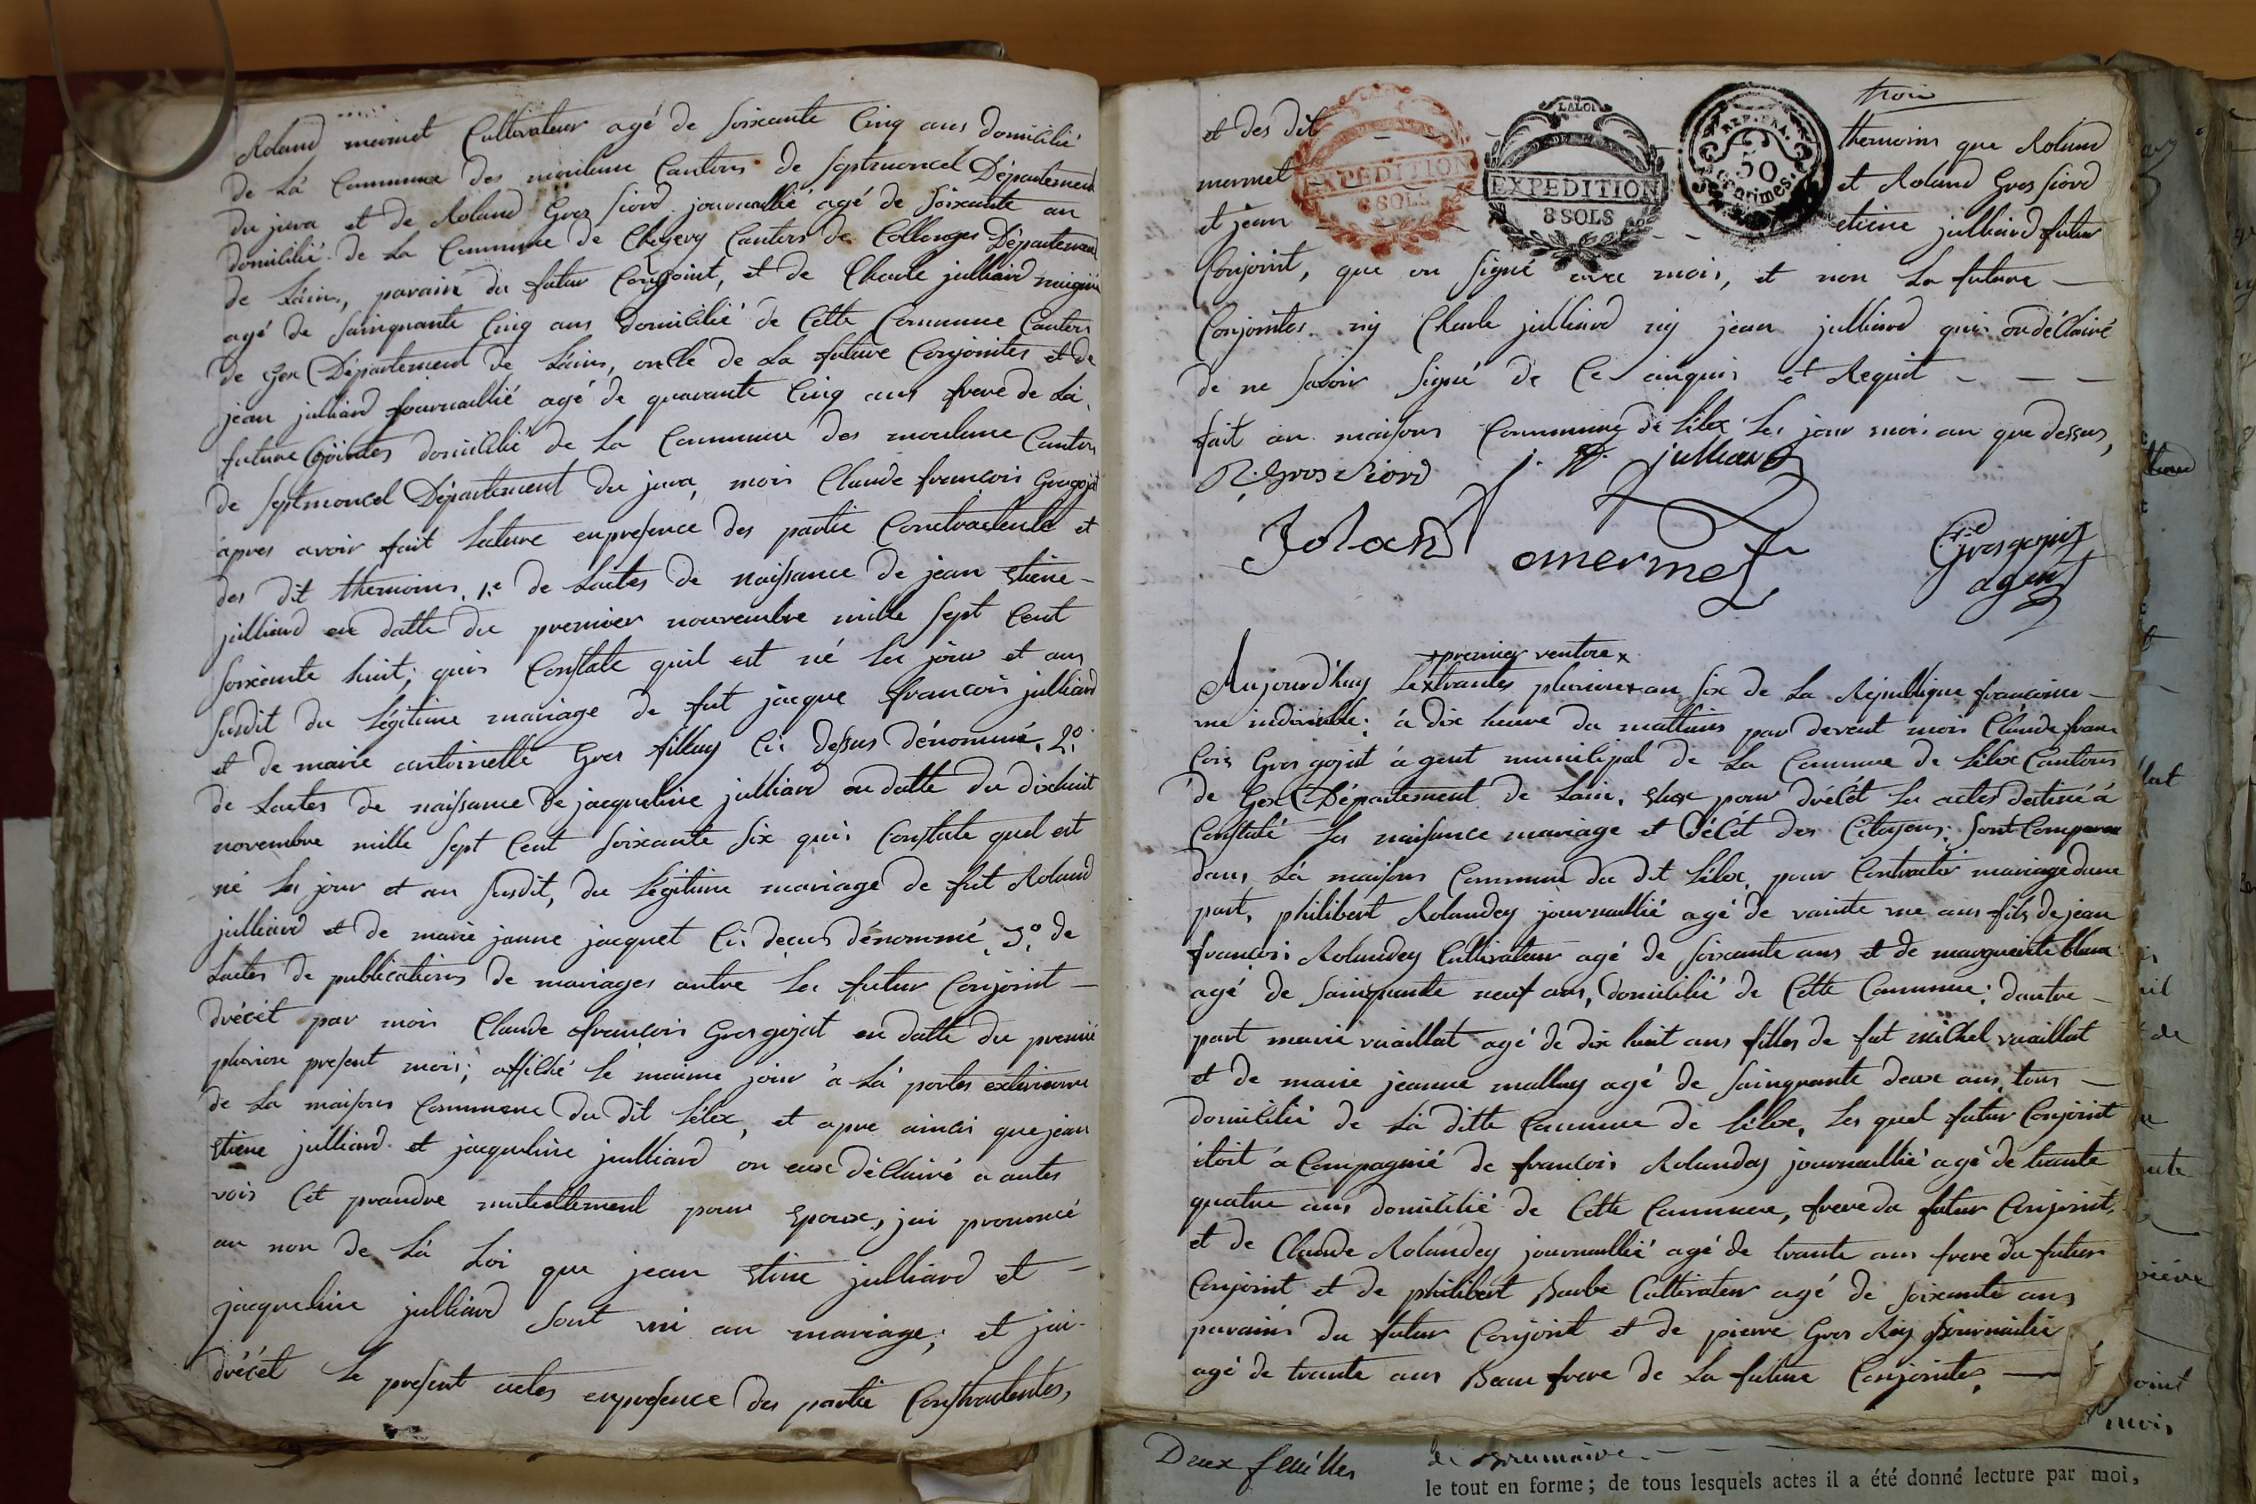 Roland mermet Cultivateur agé de soixante Cinq ans domicilié
de La Commune des moulune Cantons de septmoncel Département
du jura et de Roland Gros fiord journallié agé de soixante an
domicilié de La Commune de Chezery Cantons de Collonges Département
de Lain, parain du futur Conjoint, et de Charle julliard
agé de sainquante Cinq ans domicilié de Cette Commune Canton
de Gex Département de Lain, oncle de La future Conjointes et de
jean julliard journallié agé de quarante Cinq ans frere de La
future Cojointes domicilié de La Commune des moulune Canton
de septmoncel Département du jura, mois Claude francois Grosgojat
apres avoir fait Lecture enpresence des partie Contractente et
des dit themoins, 1.e de Lactes de naissance de jean Etiene
julliard en datte du premier nouvembre mille sept Cent
soixante huit; quis Constate quil est né Les jour et ans
susdit du Légitime mariage de fut jacque francois julliard
et de marie antoinette Gros fillay Cis dessus dénommé, 2.o
de Lactes de naissance de jacqueline julliard en datte du dixhuit
novembre mille sept Cent soixante six quis Constate quel est
né Les jour et an susdit, du Légitime mariage de fut Roland
julliard et de marie janne jacquet Cis decus dénommé, 3.o de
Lactes de publications de mariages antre Les futur Conjoint —
drécét par mois Claude francois Grosgojat en datte du premié
pluviose present mois; affiché Le maime jour à La portes exterieurre
de La maisons Commune du dit Lélex, et apre aincis que jean
Etiene julliard et jacqueline julliard on eux déCLairé a autes
vois Cét prandre mutuellement pour Epoux, jai prononcé
au non de La Loi que jean Etiene julliard et —
jacqueline julliard sont uni an mariage; et jai
drécét Le present actes enpresence des partie Constractentes,
trois
et des dit themoins que Roland
mermet et Roland Gros fiord
et jean etiene julliard futur
EXPEDITION
8 SOLS
LALOI
EXPEDITION
8 SOLS
REP. FRA.
50
Centimes.
Conjoint, que on signé avec mois, et non La future —
Conjointes niy Charle julliard niy jean julliard quis on déCLairé
de ne savoir signé de Ce anquis et Requit — — —
fait an maisons Commune de Lélex Les jour mois an que dessus,
R. Gros fiord j. E. julliard
Roland mermet
Grosgojat
agent
x premier ventose x
Aujourd'huy Lextrantes pluviose an six de La République francoise —
une indivisible; à dix heure du mattains par devant mois Claude fran
Cois Gros gojat àgent municipal de La Commune de Lélex Cantons
de Gex Département de Lain, Elux pour drécét Les actes destiné à
Constaté Les naissance mariage et Décét des Citoyens; sont Comparu
dans La maisons Commune du dit Lélex, pour Contracter mariage dune
part, philibert Rolandey journallié agé de vainte une ans fils de jean
francois Rolandey Cultivateur agé de soixante ans et de margueritte
agé de sainquante neuf ans, domicilié de Cette Commune; dautre —
part marie vuaillat agé de dix huit ans filles de fut michel vuaillat
et de marie jeanne mallay agé de sainquante deux ans, tous —
domicilié de La ditte Commune de Lélex, Les quel futur Conjoint
étoit à Compagnié de francois Rolandey journallié agé de trante
quatre ans domicilié de Cette Commune, frere du futur Conjoint,
et de Claude Rolandey journallié agé de trante ans frere du futur
Conjoint et de philibert Barbe Cultivateur agé de soixante ans
parains du futur Conjoint et de pierre Gros Rey journalié
agé de trante ans Beau frere de La future Conjointes, —
Deux feuilles
de Brumaire
le tout en forme; de tous lesquels actes il a été donné lecture par moi,